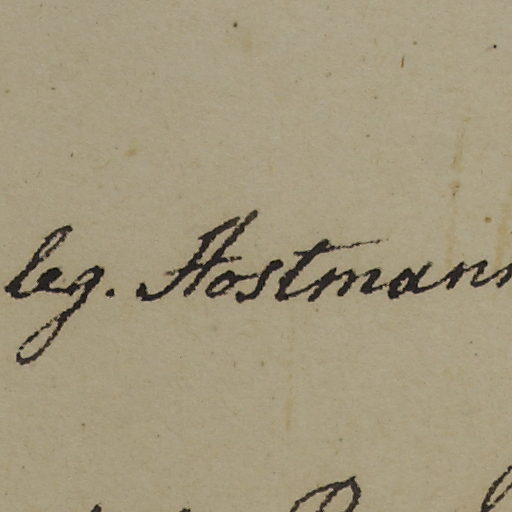 leg. Hostmann